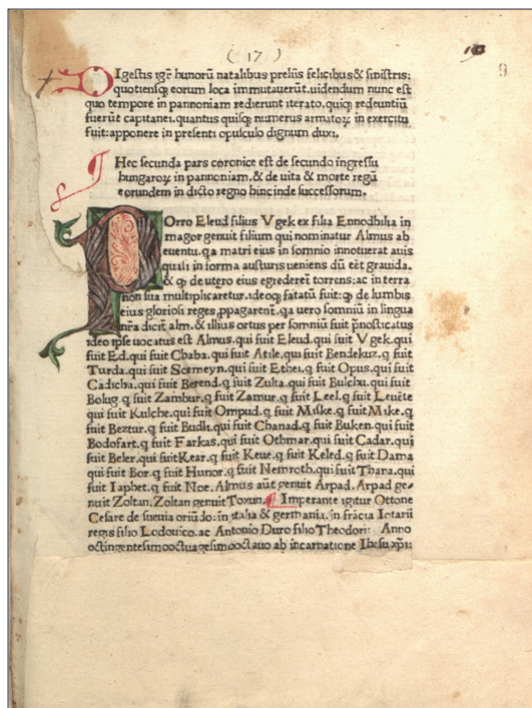 (17)
9
DIgestis igr̃ hunorũ natalibus preliis felicibus & sinistris:
quotiensqꝫ eorum loca immutauerũt. uidendum nunc est
quo tempore in pannoniam redierunt iterato. quiqꝫ redeuntiũ
fuerũt capitanei. quantus quisqꝫ numerus armatoꝝ in exercitu
fuit: apponere in presenti opusculo dignum duxi.
Hec secunda pars coronice est de secundo ingressu
hungaroꝝ in pannoniam. & de uita & morte regũ
eorundem in dicto regno hinc inde successorum.
POrro Eleud filius Vgek ex filia Ennodbilia in
magor genuit filium qui nominatur Almus ab
euentu. qa matri eius in somnio innotuerat auis
quasi in forma austuris ueniens dũ eẽt grauida.
& qꝫ de utero eius egrederet̃ torrens: ac in terra
non sua multiplicaretur. ideoqꝫ fatatũ fuit: qꝫ de lumbis
eius gloriosi reges ꝓpagarent̃. qa uero somniũ in lingua
nr̃a dicit̃ alm. & illius ortus per somniũ fuit p̃nosticatus
ideo ipse uocatus est Almus. qui fuit Eleud. qui fuit Vgek. qui
fuit Ed. qui fuit Chaba. qui fuit Atile. qui fuit Bendekuz. q fuit
Turda. qui fuit Scemeyn. qui fuit Ethei. q fuit Opus. qui fuit
Cadicha. qui fuit Berend. q fuit Zulta. qui fuit Bulchu. qui fuit
Bolug. q fuit Zambur. q fuit Zamur. q fuit Leel. q fuit Leuẽte
qui fuit Kulche. qui fuit Ompud. q fuit Miske. q fuit Mike. q
fuit Beztur. q fuit Budli. qui fuit Chanad. q fuit Buken. qui fuit
Bodofart. q fuit Farkas. qui fuit Othmar. qui fuit Cadar. qui
fuit Beler. qui fuit Kear. q fuit Keue. q fuit Keled. q fuit Dama
qui fuit Bor. q fuit Hunor. q fuit Nemroth. qui fuit Thana. qui
fuit Iaphet. q fuit Noe. Almus aũt genuit Arpad. Arpad ge-
nuit Zoltan. Zoltan genuit Toxun. Imperante igitur Ottone
Cesare de sueuia oriũdo: in italia & germania. in frãcia Lotarii
regis filio Lodouico. ac Antonio Duro filio Theodori: Anno
octingentesimooctuagesimooctauo ab incarnatione Ihesu xp̃i: